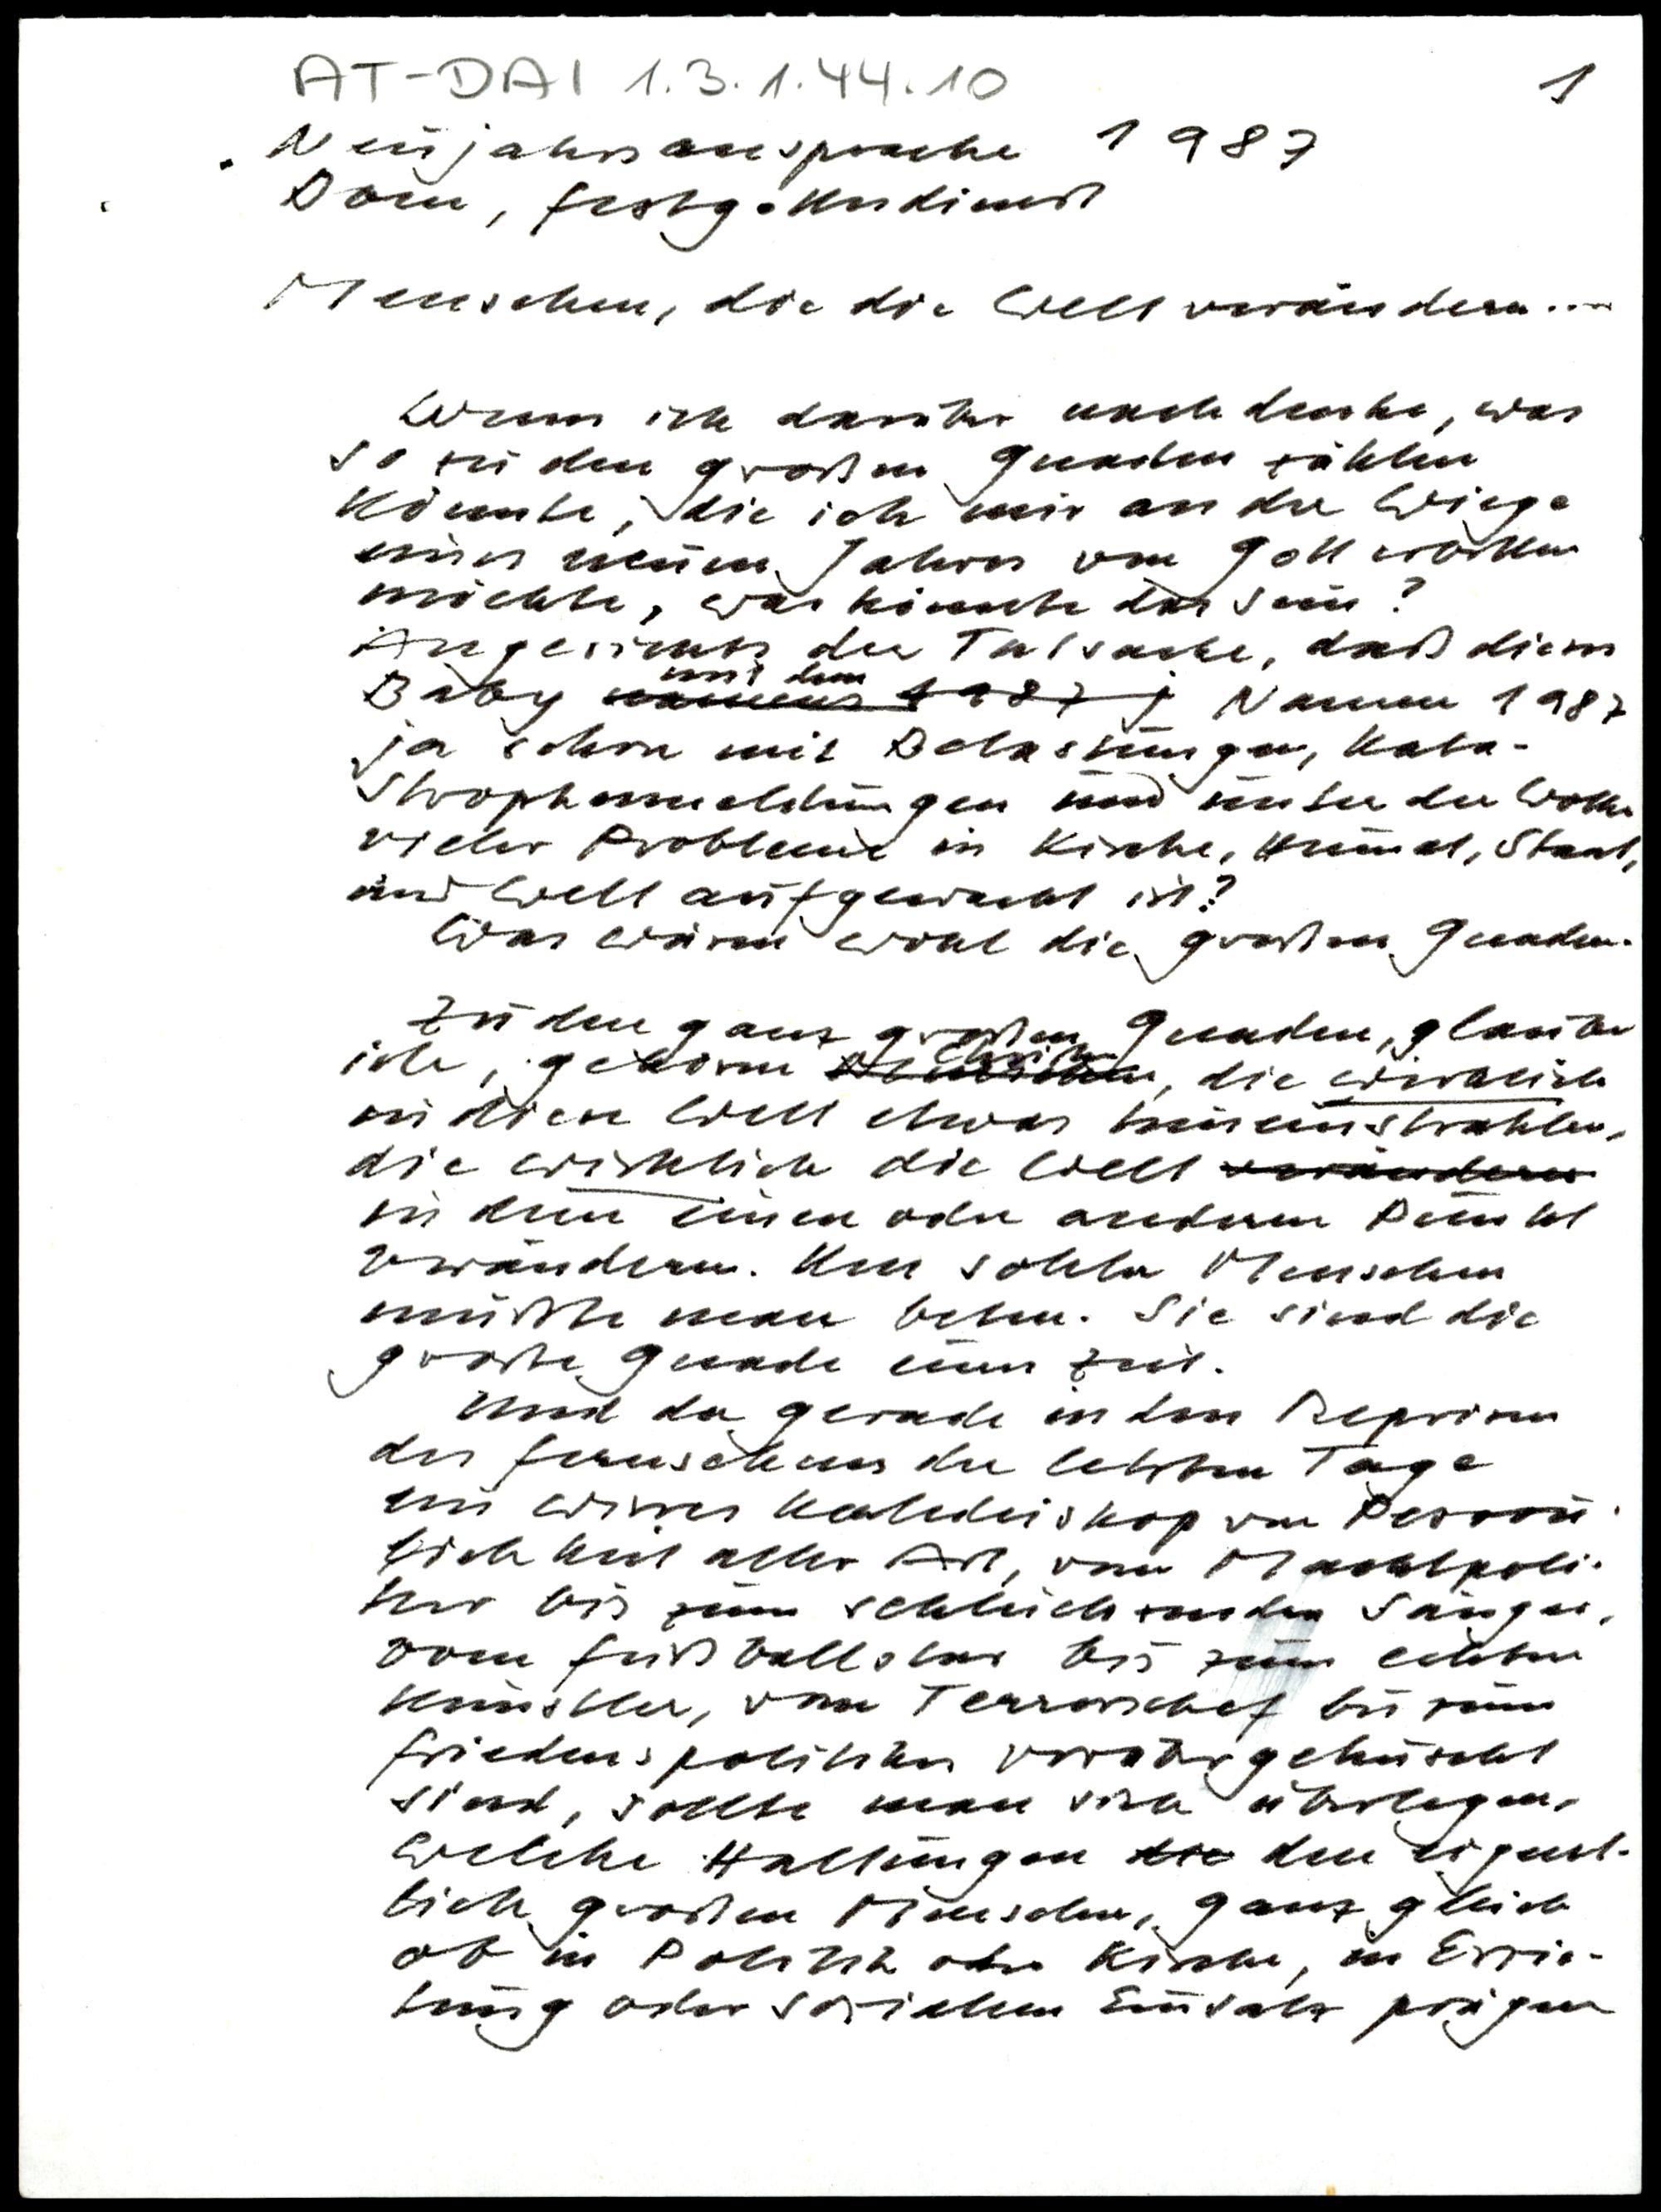 AT-DAI 1.3.1.44.10
1
Neujahrsansprache 1987
Dom, Festgottesdienst
Menschen, die die Welt verändern...
Wenn ich darüber nachdenke, was
so zu den großen Gnaden zählen
könnte, die ich mir an der Wiege
eines neuen Jahres von Gott erbitten
möchte, was könnte das sein?
Angesichts der Tatsache, daß dieses
mit dem
Baby namens 1987 j Namen 1987
ja schon mit Belastungen, Kata-
strophenmeldungen und unter der Wolke
vieler Probleme in Kirche, Heimat, Staat,
und Welt aufgewacht ist?
Was wären wohl die großen Gnaden.
Zu den ganz großen Gnaden, glaube
Christen
ich, gehören Menschen, die wirklich
in diese Welt etwas hineinstrahlen,
die wirklich die Welt verändern
in dem einen oder anderen Punkt
verändern. Um solche Menschen
müßte man beten. Sie sind die
große Gnade einer Zeit.
Und da gerade in den Reprisen
des Fernsehens der letzten Tage
ein wirres Kaleidoskop von Persön-
lichkeit aller Art, vom Machtpoli-
ker bis zum schluchzenden Sänger,
vom Fußballstar bis zum echten
Künstler, vom Terrorchef bis zum
Friedenspolitiker vorübergehuscht
sind, sollte man sich überlegen,
welche Haltungen die den eigent-
lich großen Menschen, ganz gleich
ob in Politik oder Kirche, in Erzie-
hung oder sozialem Einsatz prägen